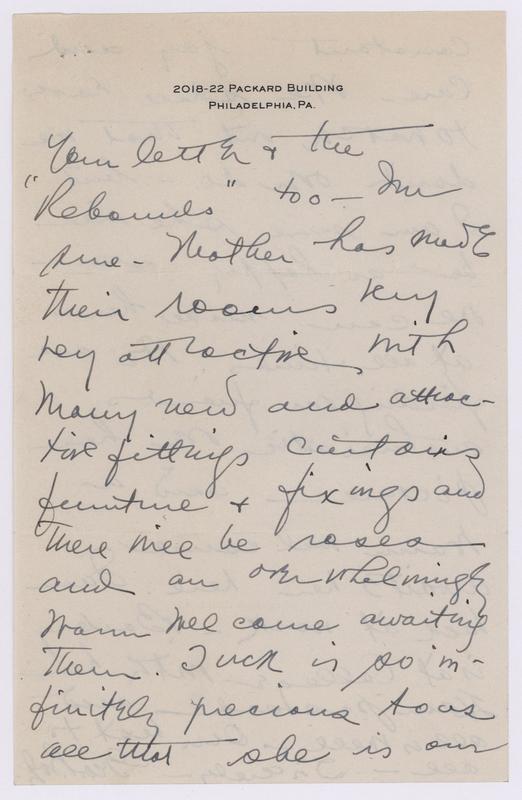 2018-22 PACKARD BUILDING
PHILADELPHIA, PA.
Your letter & the
"Rebounds" too — I'm
sure - Mother has made
their rooms very
very attractive with
many new and attrac-
tive fittings curtains
furniture & fixings and
there will be roses
and an overwhelmingly
warm welcome awaiting
them. Tuck is so in-
finitely precious to us
all that she is our